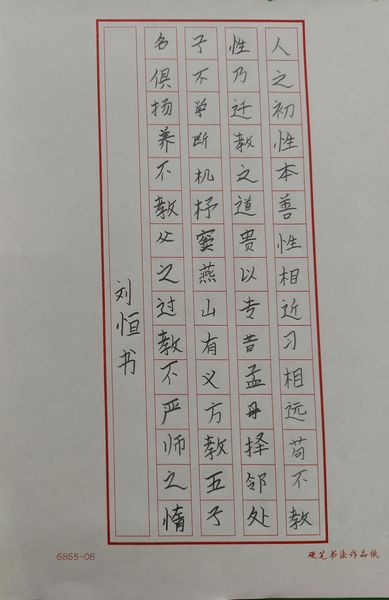 人之初性本善性相近习相远苟不教
性乃迁教之道贵以专昔孟母择邻处
子不学断机杼窦燕山有义方教五子
名俱扬养不教父之过教不严师之惰
刘恒书
6865-06
硬笔书法作品纸